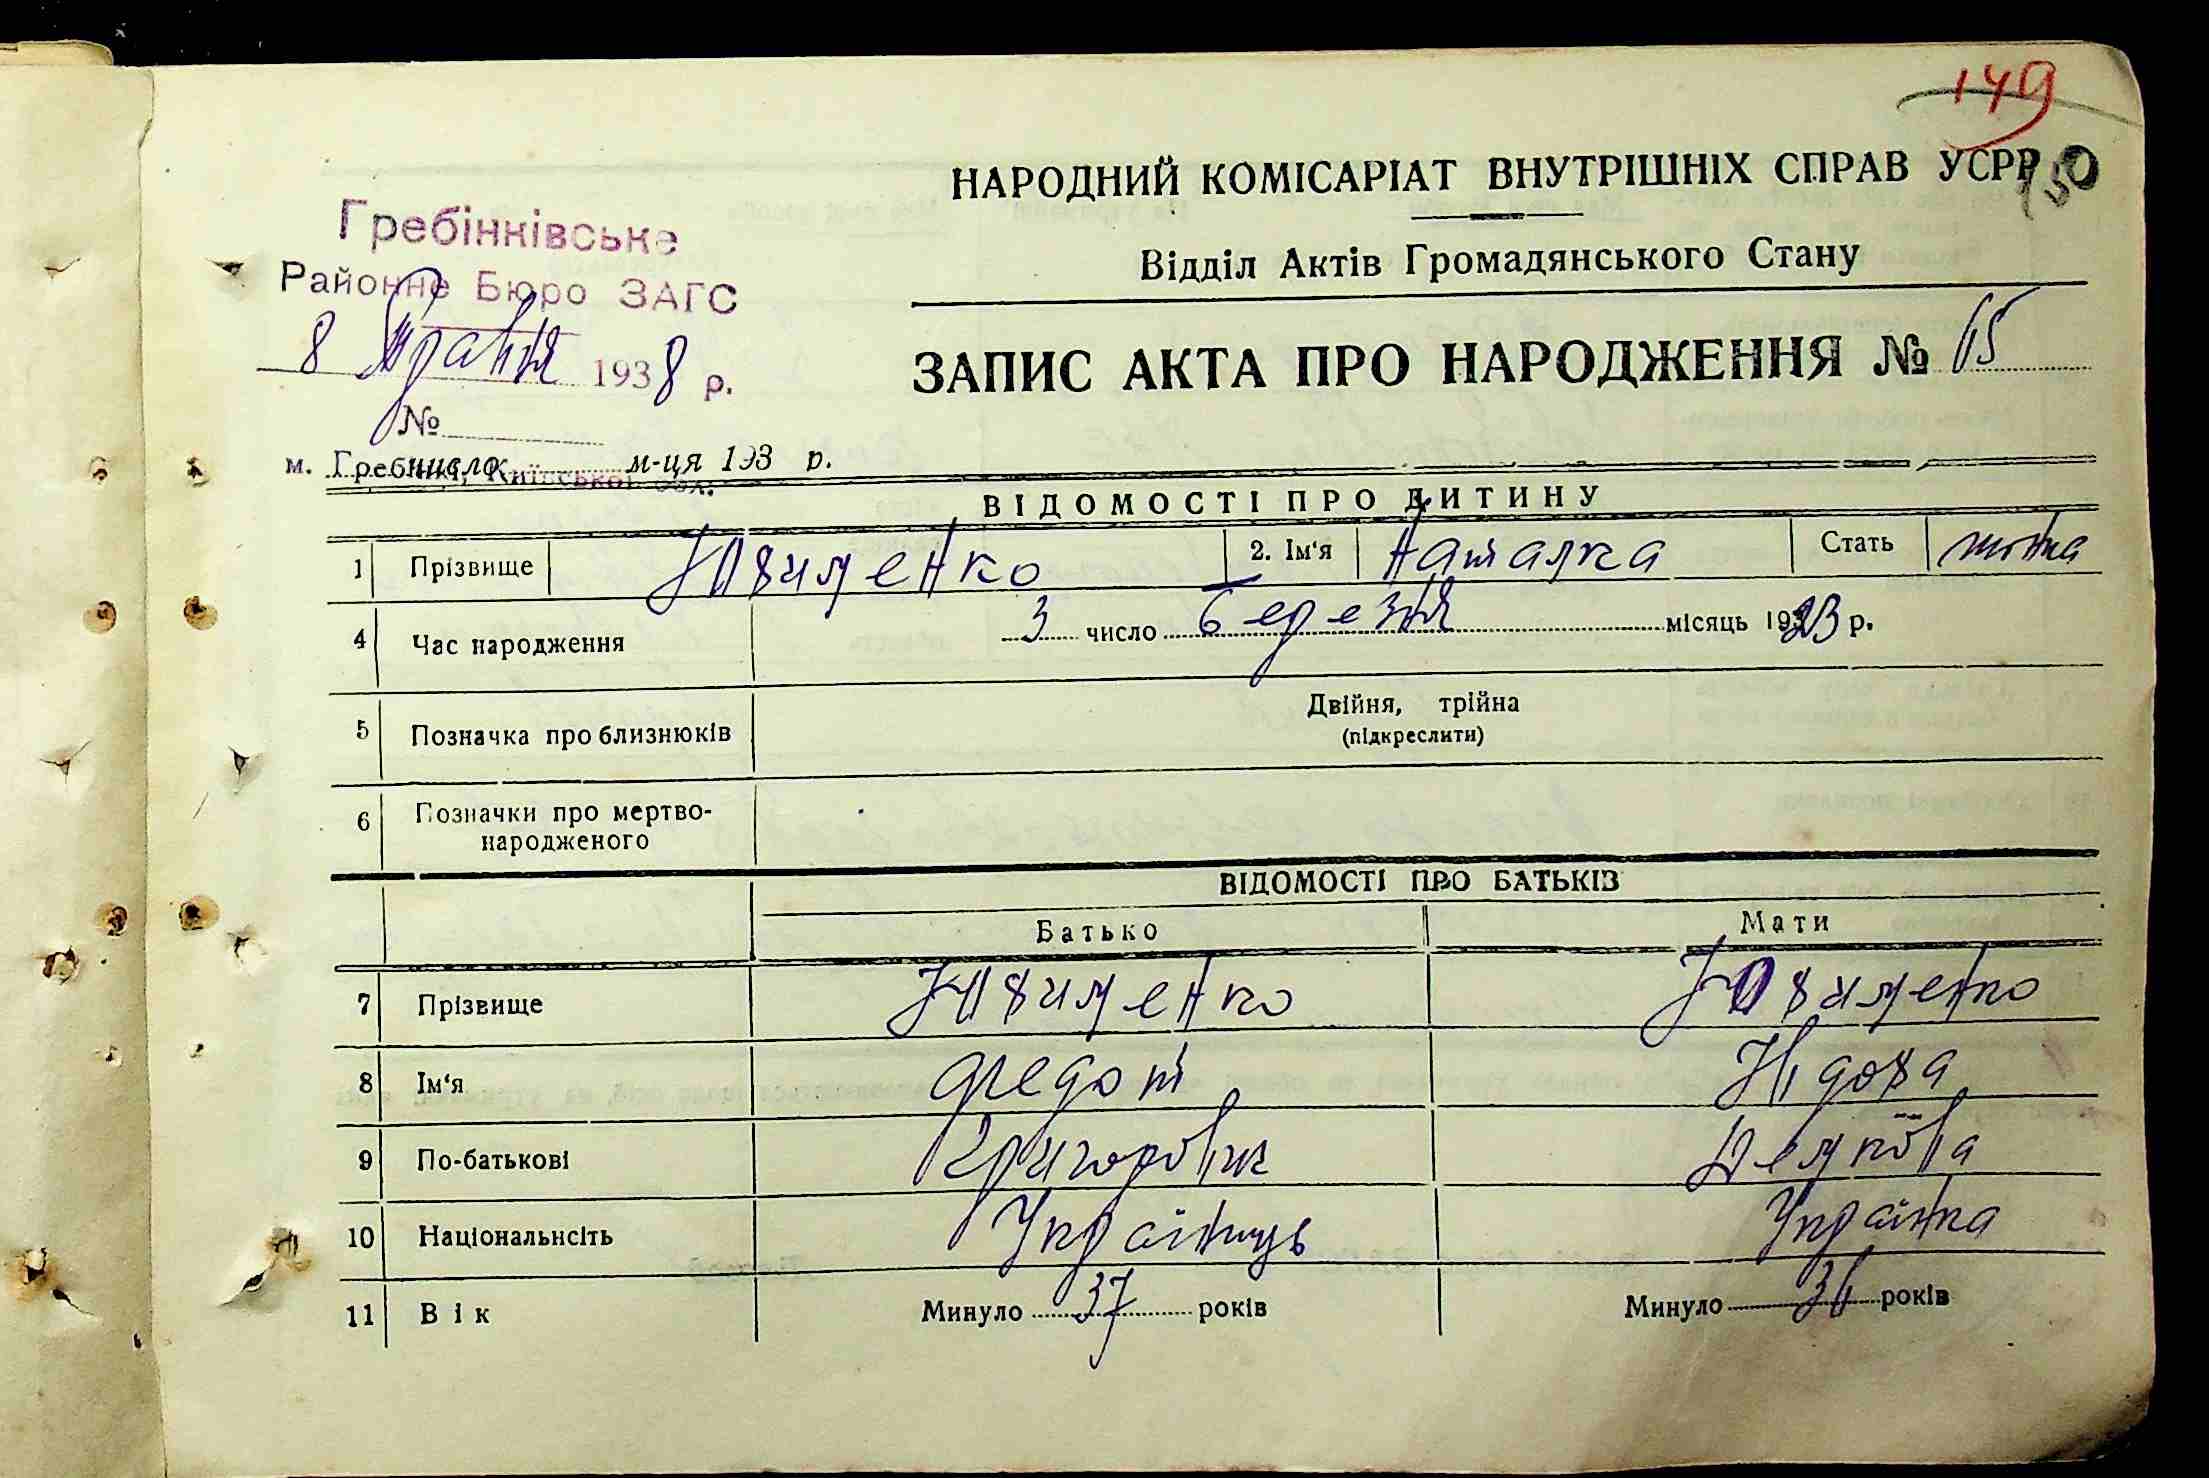 149
150
НАРОДНИЙ КОМІСАРІАТ ВНУТРІШНІХ СПРАВ УСРР
Гребінківське
Районне Бюро ЗАГС
Відділ Актів Громадянського Стану
8 Травня 1938 р.
ЗАПИС АКТА ПРО НАРОДЖЕННЯ № 65
№
м. Гребінки, Київської обл.
число м-ця 193 р.
ВІДОМОСТІ ПРО ДИТИНУ
1 Прізвище Юхименко 2. Ім'я Наталка Стать жінка
4 Час народження 3 число березня місяць 1923 р.
5 Позначка про близнюків Двійня, трійна
(підкреслити)
6 Позначки про мертво-
народженого
ВІДОМОСТІ ПРО БАТЬКІВ
Батько Мати
7 Прізвище Юхименко Юхименко
8 Ім'я Федот Явдоха
9 По-батькові Григоровіч
10 Національнсіть Українець Українка
11 Вік Минуло 37 років Минуло 36 років